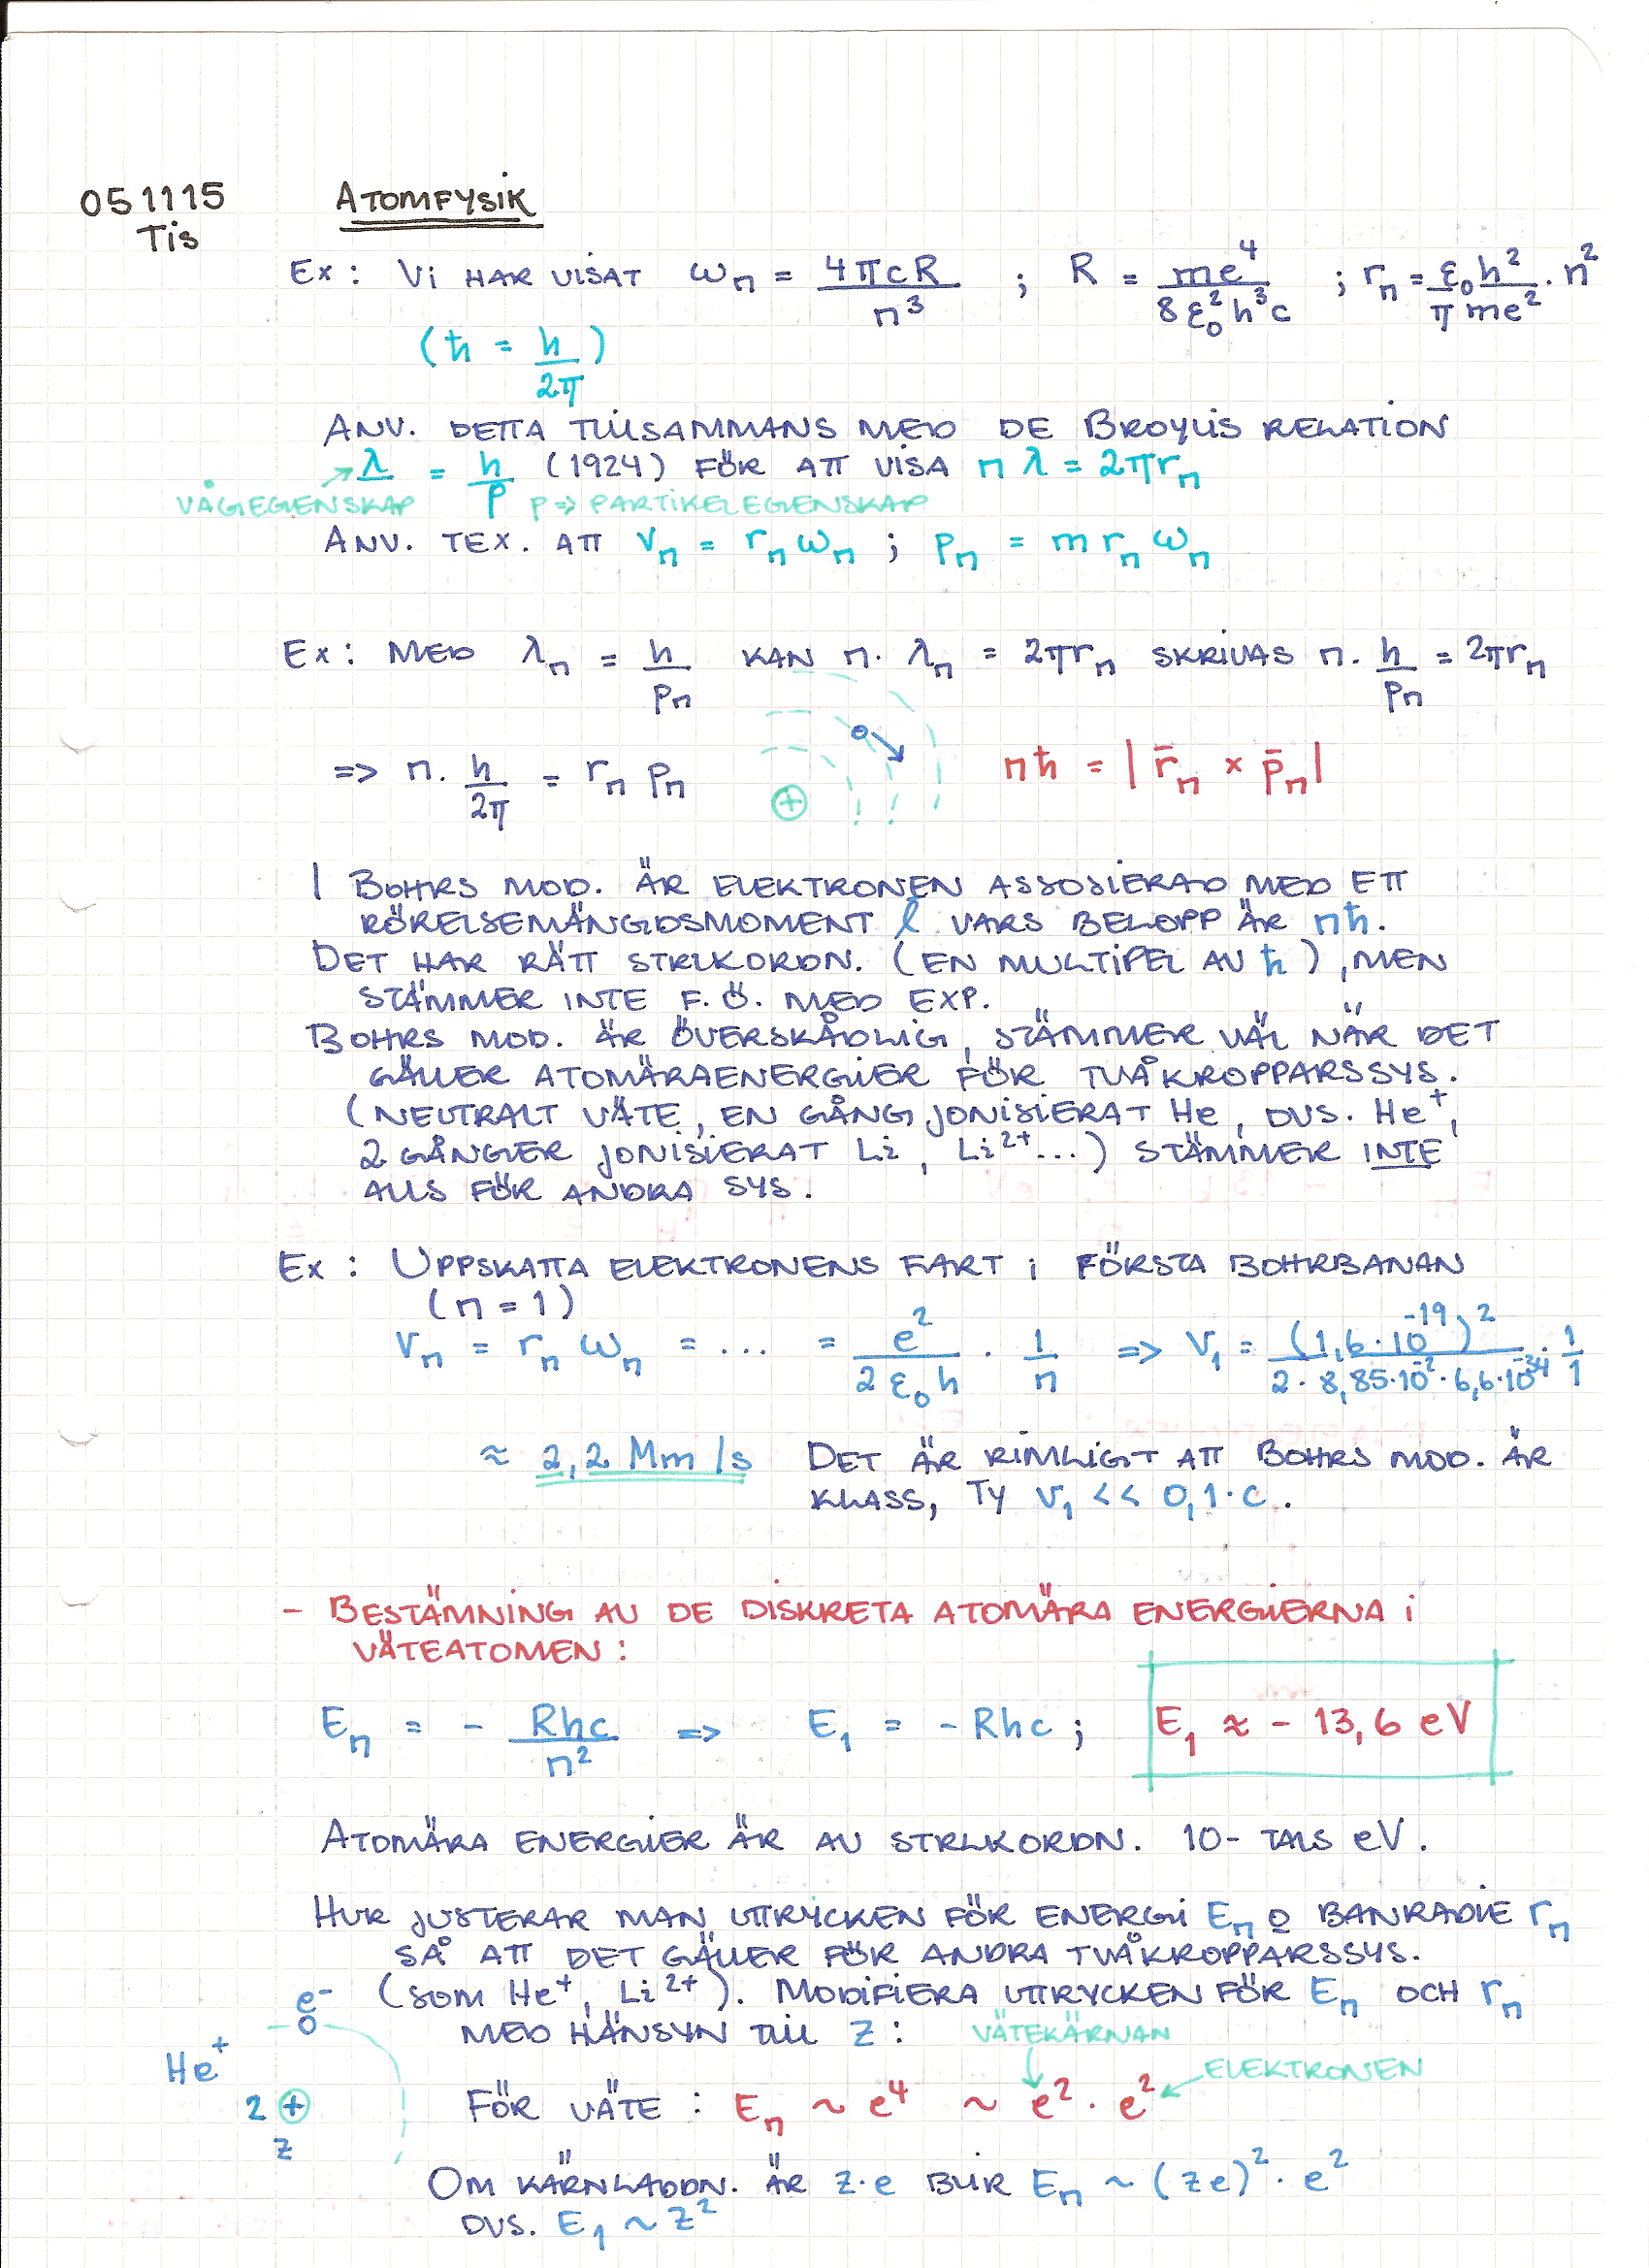 051115 ATOMFYSIK
Tis
Ex: Vi HAR VISAT ωn = 4πcR/n³ ; R = me⁴/8ε₀²h³c ; rn = ε₀h²/πme² · n²
(ħ = h/2π)
ANV. DETTA TILLSAMMANS MED DE BROYLIS RELATION
λ = h/p (1924) FÖR ATT VISA nλ = 2πrn
VÅGEGENSKAP p => PARTIKELEGENSKAP
ANV. TEX. ATT vn = rn ωn ; pn = m rn ωn
Ex: MED λn = h/pn KAN n · λn = 2πrn SKRIVAS n · h/pn = 2πrn
=> n · h/2π = rn pn
+
nħ = | r̄n × p̄n |
I BOHRS MOD. ÄR ELEKTRONEN ASSOSIERAD MED ETT
RÖRELSEMÄNGDSMOMENT ℓ VARS BELOPP ÄR nħ.
DET HAR RÄTT STRLKORDN. (EN MULTIPEL AV ħ), MEN
STÄMMER INTE F.Ö. MED EXP.
BOHRS MOD. ÄR ÖVERSKÅDLIG, STÄMMER VÄL NÄR DET
GÄLLER ATOMÄRAENERGIER FÖR TVÅKROPPARSSYS.
(NEUTRALT VÄTE, EN GÅNG JONISIERAT He, DVS. He⁺,
2 GÅNGER JONISIERAT Li, Li²⁺...) STÄMMER INTE
ALLS FÖR ANDRA SYS.
Ex: UPPSKATTA ELEKTRONENS FART i FÖRSTA BOHRBANAN
(n = 1)
vn = rn ωn = ... = e²/2ε₀h · 1/n => v₁ = (1,6·10⁻¹⁹)²/2·8,85·10⁻²·6,6·10⁻³⁴ · 1/1
≈ 2,2 Mm/s DET ÄR RIMLIGT ATT BOHRS MOD. ÄR
KLASS, Ty v₁ << 0,1·c.
- BESTÄMNING AV DE DISKRETA ATOMÄRA ENERGIERNA i
VÄTEATOMEN:
En = - Rhc/n² => E₁ = -Rhc ; E₁ ≈ - 13,6 eV
ATOMÄRA ENERGIER ÄR AV STRLKORDN. 10-TALS eV.
HUR JUSTERAR MAN UTTRYCKEN FÖR ENERGI En o BANRADIE rn
SÅ ATT DET GÄLLER FÖR ANDRA TVÅKROPPARSSYS.
(SOM He⁺, Li²⁺). MODIFIERA UTTRYCKEN FÖR En OCH rn
MED HÄNSYN TILL Z:
e⁻
He⁺
2 +
Z
VÄTEKÄRNAN
ELEKTRONEN
FÖR VÄTE : En ~ e⁴ ~ e² · e²
OM KÄRNLADDN. ÄR Z·e BLIR En ~ (Ze)² · e²
DVS. E₁ ~ Z²